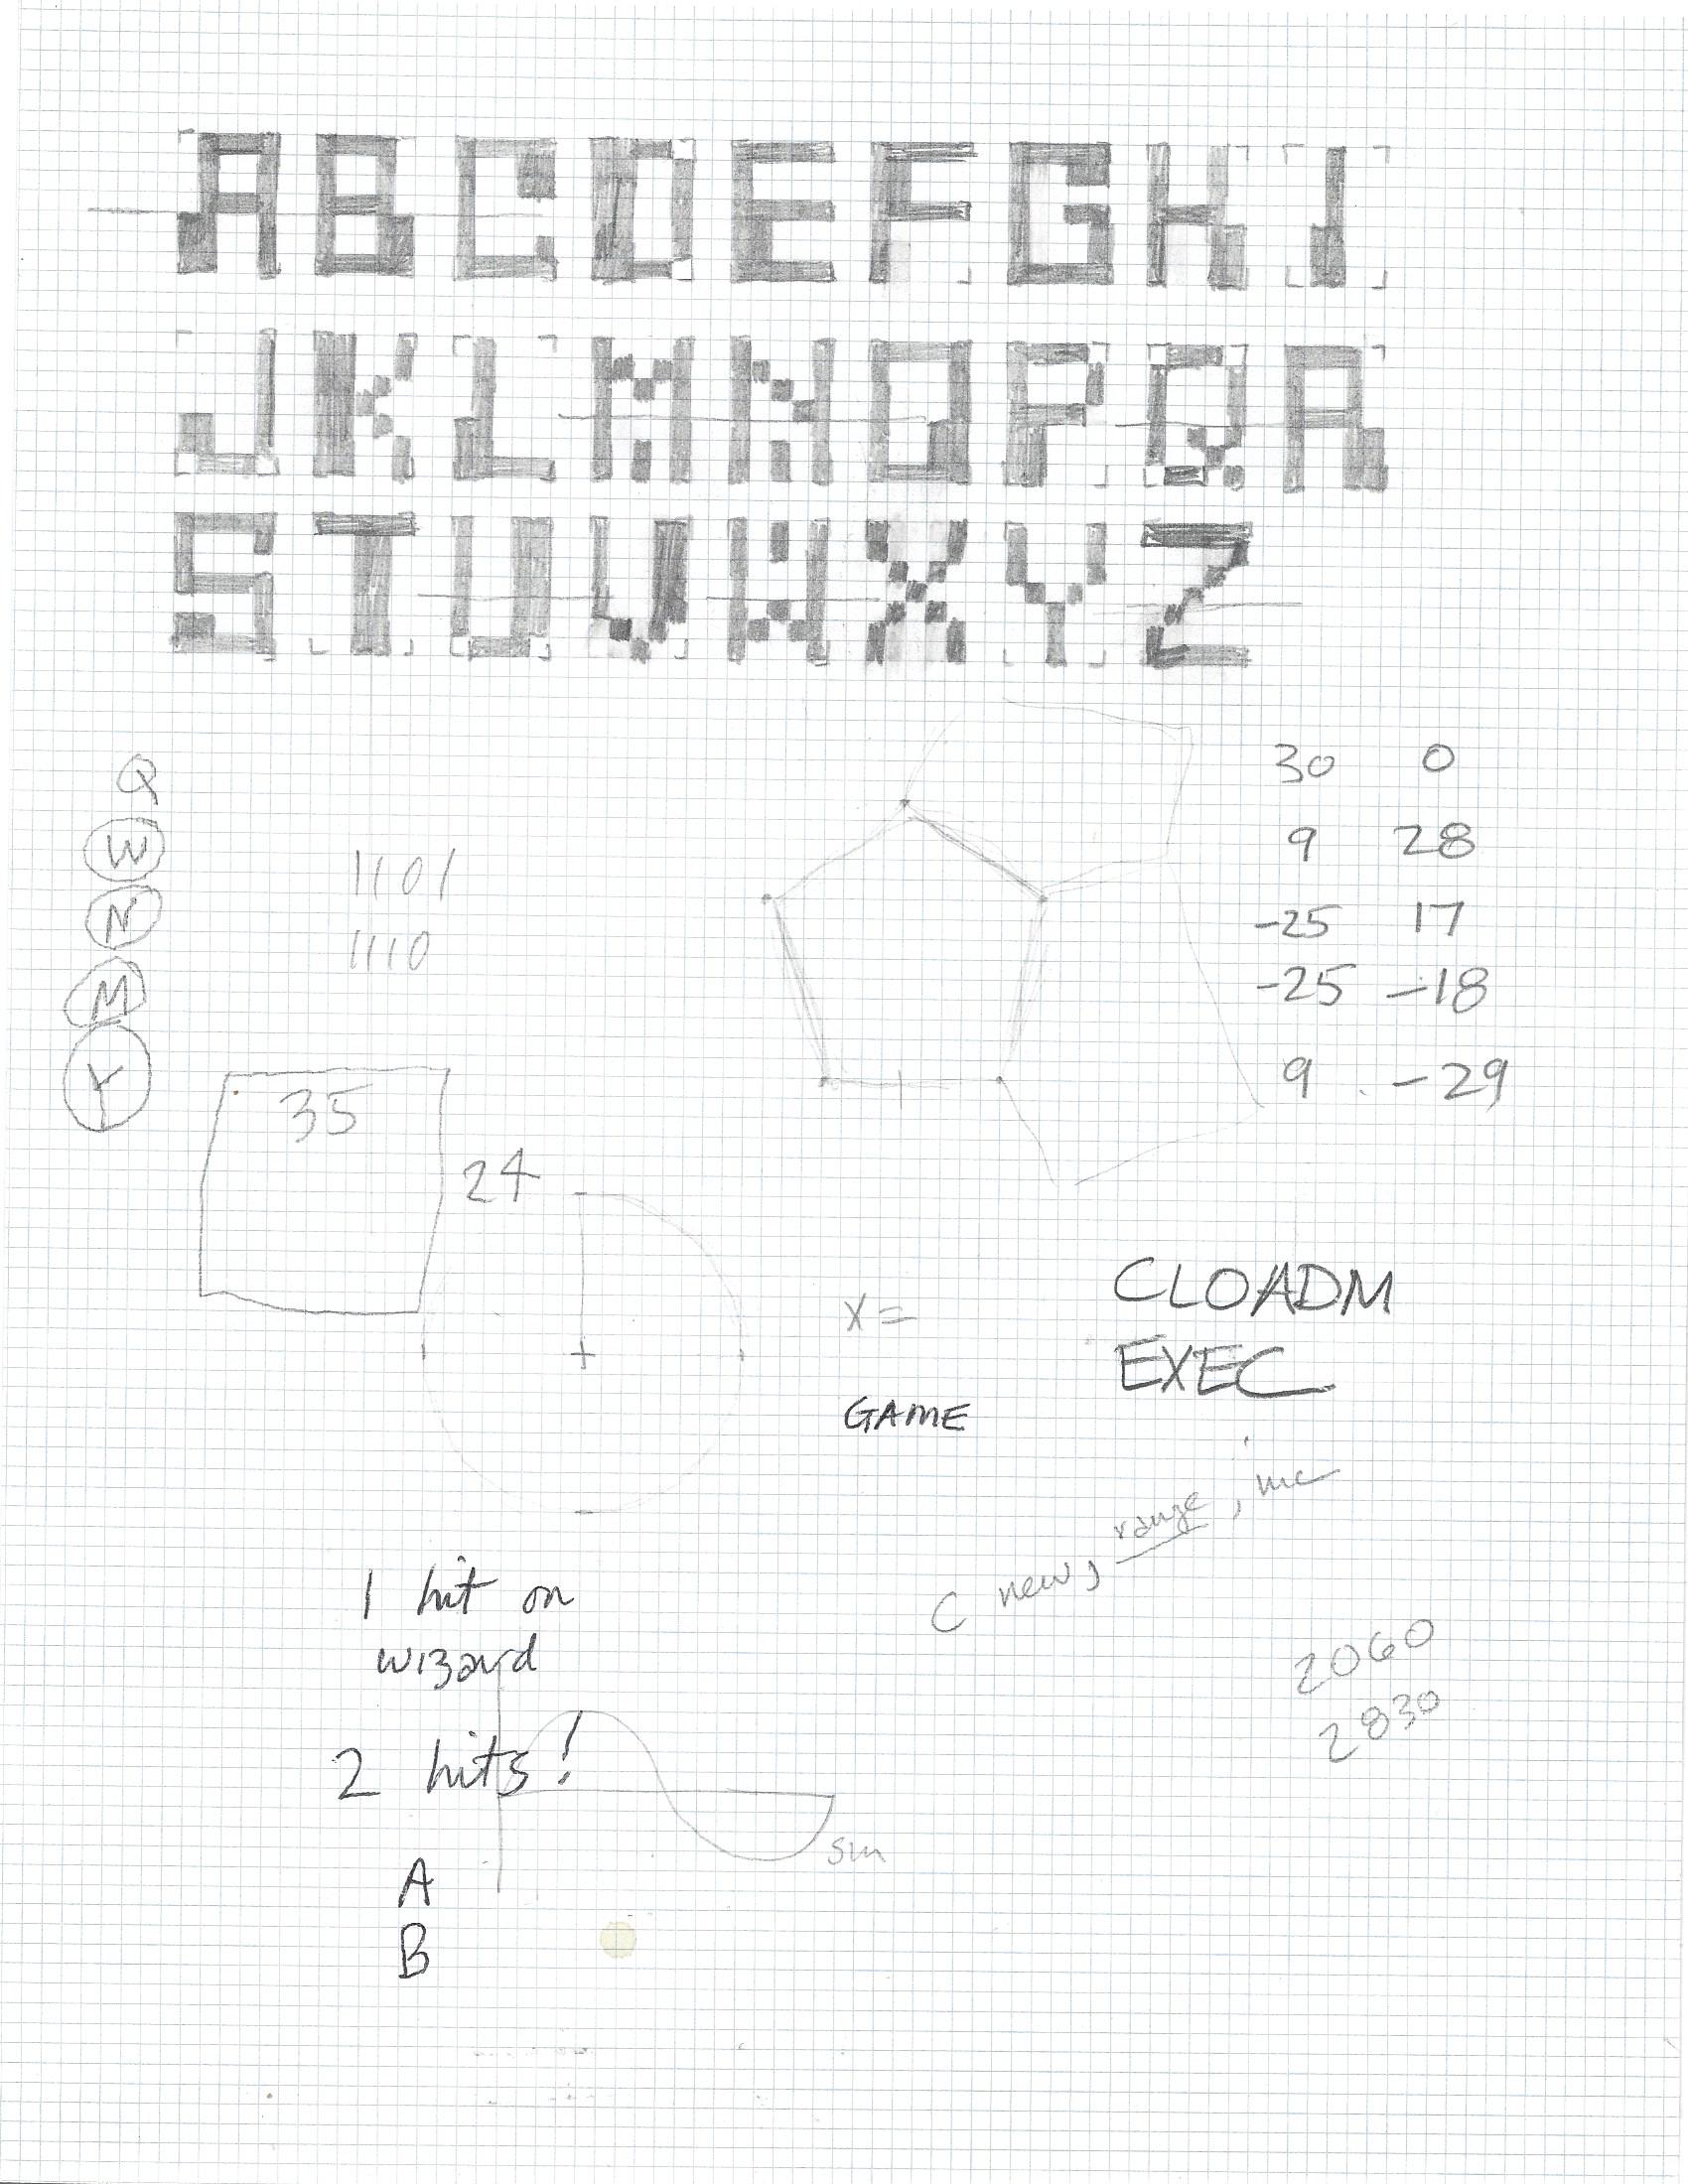 ABCDEFGHI
JKLMNOPQR
STUVWXYZ
Q
W
N
M
Y
1101
1110
30 0
9 28
-25 17
-25 -18
9 -29
35
24
X=
GAME
CLOADM
EXEC
C new, range, inc
1 hit on
wizard
2 hits!
sin
A
B
2060
2830